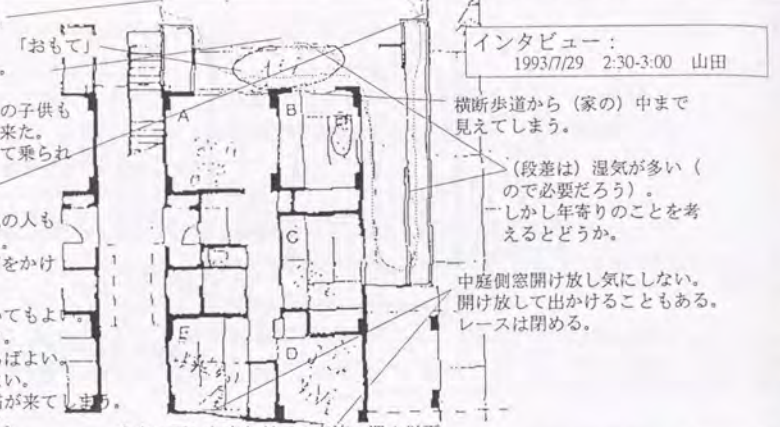 「おもて」
。
の子供も
来た。
て乗られ
の人も
。
をかけ
てもよい。
。
ばよい。
い。
が来てしまう。
A
B
C
D
E
インタビュー：
1993/7/29 2:30-3:00 山田
横断歩道から（家の）中まで
見えてしまう。
（段差は）湿気が多い（
ので必要だろう）。
しかし年寄りのことを考
えるとどうか。
中庭側窓開け放し気にしない。
開け放して出かけることもある。
レースは閉める。